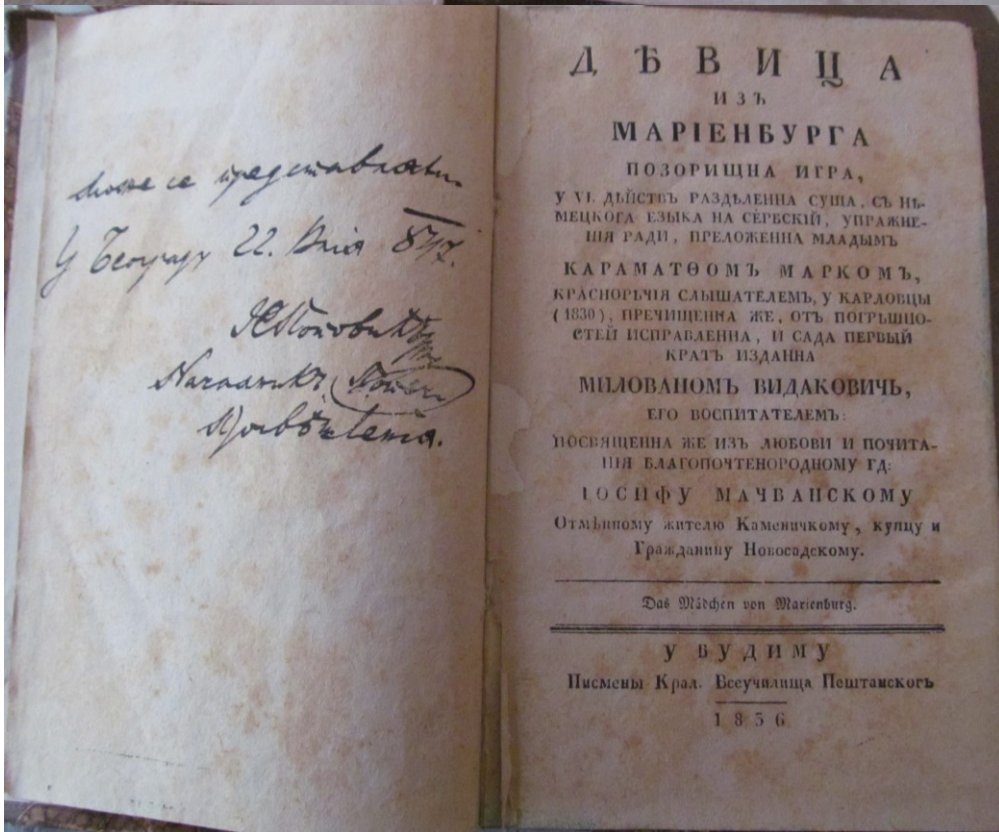 може се представляти
У Београду 22. Юлія 847.
Началникъ
Просвѣщенія.
ДѢВИЦА
ИЗЪ
МАРІЕНБУРГА
ПОЗОРИЩНА ИГРА,
У VI. ДѢЙСТВЪ РАЗДѢЛЕННА СУЩА, СЪ НѢ-
МЕЦКОГА ЕЗЫКА НА СЕРБСКІЙ, УПРАЖНЕ-
НІЯ РАДИ, ПРЕЛОЖЕННА МЛАДЫМЪ
КАРАМАТѲОМЪ МАРКОМЪ,
КРАСНОРѢЧІЯ СЛЫШАТЕЛЕМЪ, У КАРЛОВЦЫ
(1830), ПРЕЧИЩЕННА ЖЕ, ОТЪ ПОГРѢШНО-
СТЕЙ ИСПРАВЛЕННА, И САДА ПЕРВЫЙ
КРАТЪ ИЗДАННА
МИЛОВАНОМЪ ВИДАКОВИЧЬ,
ЕГО ВОСПИТАТЕЛЕМЪ:
ПОСВЯЩЕННА ЖЕ ИЗЪ ЛЮБОВИ И ПОЧИТА-
НІЯ БЛАГОПОЧТЕНОРОДНОМУ ГД:
ІОСИФУ МАЧВАНСКОМУ
Отмѣнному жителю Каменичкому, купцу и
Гражданину Новосадскому.
Das Mädchen von Marienburg.
У БУДИМУ
Писмены Крал. Всеучилища Пештанскогъ
1836